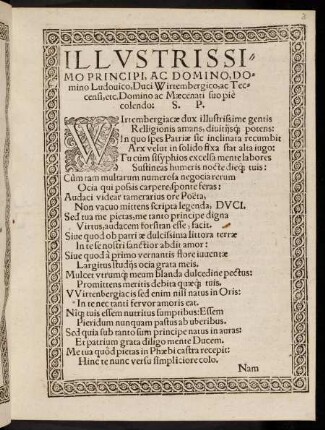 ILLVSTRISSI-
MO PRINCIPI, AC DOMINO, DO-
mino Ludouico, Duci Wirtembergico, ac Tec-
censi, etc, Domino ac Mœcenati suo piè
colendo: S. P.
WIrtembergiacæ dux illustrissime gentis
Relligionis amans, diuitijsq; potens:
In quo spes Patriæ sic inclinata recumbit
Arx velut in solido fixa stat alta iugo:
Tu cùm sisyphios excelsa mente labores
Sustineas humeris nocte dieq; tuis:
Cùm tam multarum numerosa negocia rerum
Ocia qui possis carpere, sponte feras:
Audaci videar tamerarius ore Poëta,
Non vacuo mittens scripta legenda, DVCI.
Sed tua me pietas, me tanto principe digna
Virtus, audacem forsitan esse, facit.
Siue quod ob patriæ dulcissima littora terræ
In te se nostri sanctior abdit amor:
Siue quod à primo vernantis flore iuuentæ
Largitus studijs ocia grata meis.
Mulcet vtrumq; meum blanda dulcedine pectus:
Promittens meritis debita quæq; tuis.
VVirtenbergiacis sed enim nisi natus in Oris:
In te nec tanti feruor amoris eat.
Niq; tuis essem nutritus sumptibus: Essem
Pieridum nunquam pastus ab vberibus.
Sed quia sub tanto sum principe natus in auras:
Et patrium grata diligo mente Ducem.
Me tua quòd pietas in Phœbi castra recepit:
Hinc te nunc versu simpliciore colo.
Nam